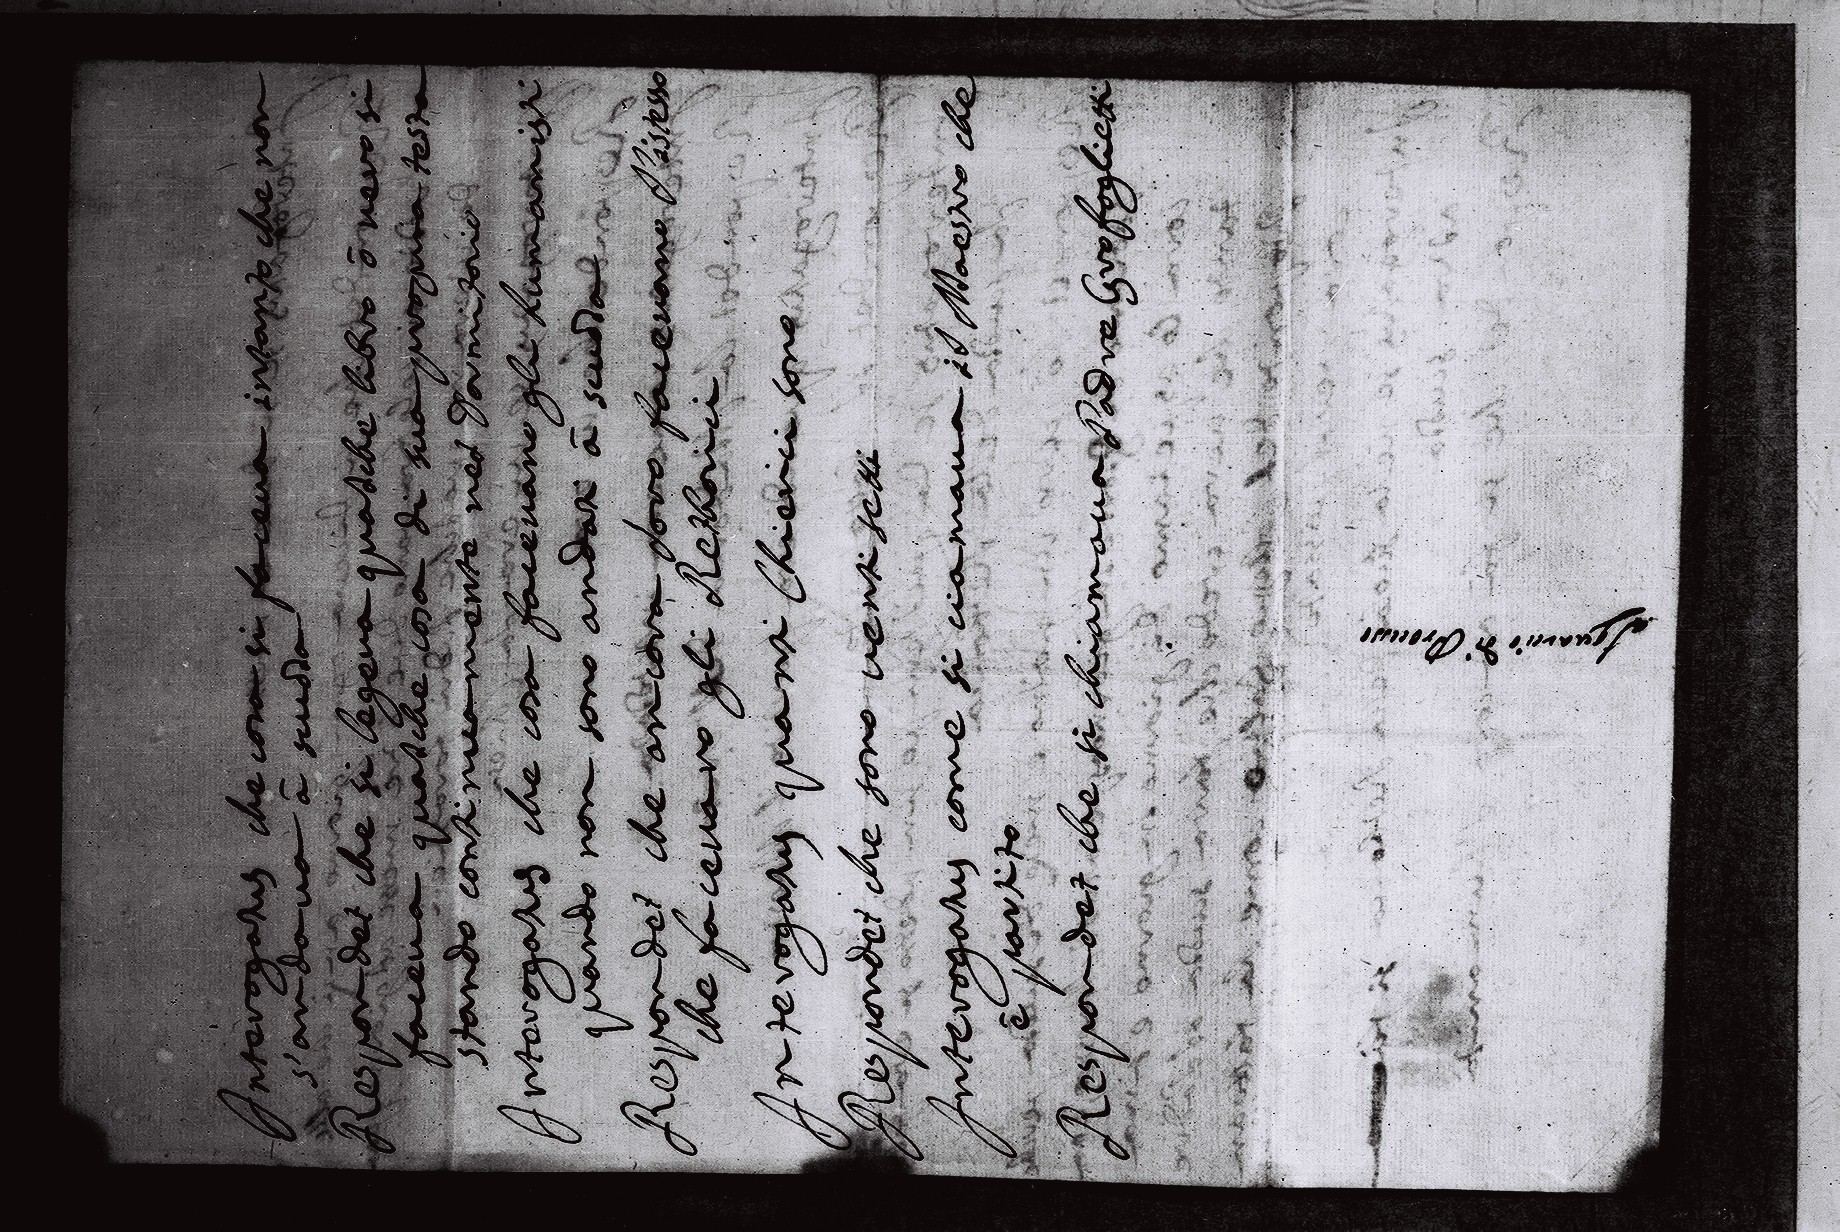 Interrogatus che cosa si faceua intanto che non
s'andaua à scuola
Respondet che si legeua qualche libro ò uero si
faceua qualche cosa di sua propria testa
stando continuamente nel Dormitorio
Interrogatus che cosa faceuano gli humanisti
quando non sono andati à scuola
Respondet che ancora loro faceuano l'istesso
che faceuano gli Rethorici
Interrogatus quanti Chierici sono
Respondet che sono uenti setti
Interrogatus come si ciamaua il Maestro che
è partito
Respondet che si chiamaua Padre Grofoglietti
di